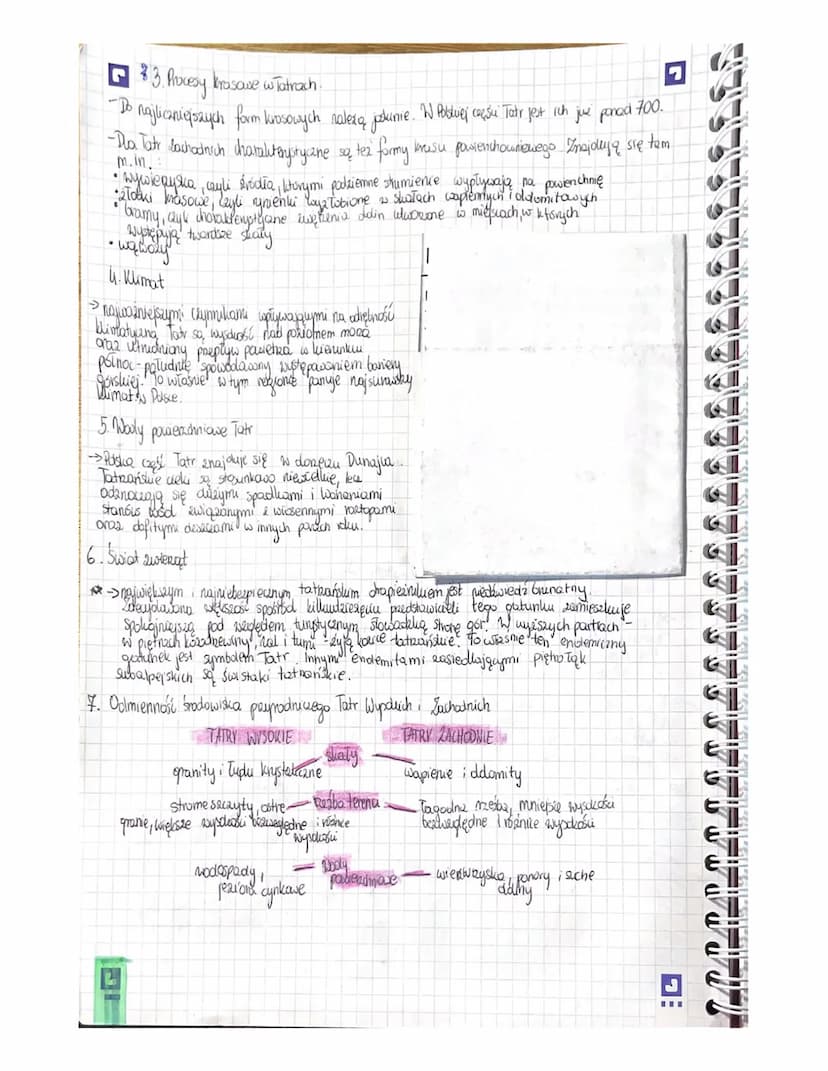 3. Procesy krasowe w Tatrach.
- Do najliczniejszych form krasowych należą jaskinie. W Polskiej części Tatr jest ich już ponad 700.
- Dla Tatr Zachodnich charakterystyczne są też formy krasu powierzchniowego. Znajdują się tam
m.in.:
• wywierzyska, czyli źródła, którymi podziemne strumienie wypływają na powierzchnię
• żłobki krasowe, czyli rynienki wyżłobione w skałach wapiennych i dolomitowych
• bramy, czyli charakterystyczne zwężenia dolin utworzone w miejscach, w których
występują twardsze skały
• wąwozy
4. Klimat
→ najważniejszymi czynnikami wpływającymi na odrębność
klimatyczną Tatr są wysokość nad poziomem morza
oraz utrudniony przepływ powietrza w kierunku
północ-południe spowodowany występowaniem bariery
górskiej. To właśnie w tym regionie panuje najsurowszy
klimat w Polsce.
5. Wody powierzchniowe Tatr
→ Polska część Tatr znajduje się w dorzeczu Dunajca.
Tatrzańskie cieki są stosunkowo niewielkie, lecz
odznaczają się dużymi spadkami i wahaniami
stanów wód związanymi z wiosennymi roztopami
oraz obfitymi deszczami w innych porach roku.
6. Świat zwierząt
→ największym i najniebezpiecznym tatrzańskim drapieżnikiem jest niedźwiedź brunatny.
Zdecydowana większość spośród kilkudziesięciu przedstawicieli tego gatunku zamieszkuje
spokojniejszą pod względem turystycznym słowacką stronę gór. W wyższych partiach -
w piętrach kosodrzewiny, hal i turni - żyją kozice tatrzańskie. To właśnie ten endemiczny
gatunek jest symbolem Tatr. Innymi endemitami zasiedlającymi piętro łąk
subalpejskich są świstaki tatrzańskie.
7. Odmienność środowiska przyrodniczego Tatr Wysokich i Zachodnich
TATRY WYSOKIE TATRY ZACHODNIE
skały
granity i łupki krystaliczne wapienie i dolomity
strome szczyty, ostre - rzeźba terenu - łagodna rzeźba, mniejsze wysokości
granie, większe wysokości bezwzględne i różnice bezwzględne i różnice wysokości
wysokości
wodospady, - Wody powierzchniowe - wierzwyska, ponory i suche
jeziora cyrkowe doliny